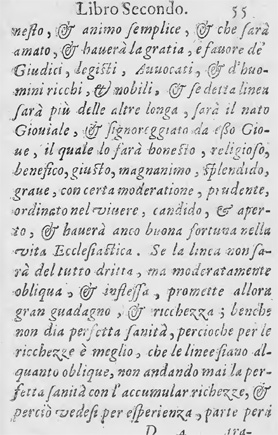 Libro Secondo. 55
nesto, & animo semplice, & che sarà
amato, & hauerà la gratia, e fauore de'
Giudici, legisti, Auuocati, & d'huo-
mini ricchi, & nobili, & se detta linea
sarà più delle altre longa, sarà il nato
Giouiale, & signoreggiato da esso Gio-
ue, il quale lo farà honesto, religioso,
benefico, giusto, magnanimo, splendido,
graue, con certa moderatione, prudente,
ordinato nel viuere, candido, & aper-
to, & hauerà anco buona fortuna nella
vita Ecclesiastica. Se la linea non sa-
rà del tutto dritta, ma moderatamente
obliqua, & inflessa, promette allora
gran guadagno, & ricchezza; benche
non dia perfetta sanità, percioche per le
ricchezze è meglio, che le linee siano al-
quanto oblique, non andando mai la per-
fetta sanità con l'accumular richezze, &
perciò vedesi per esperienza, parte per i
D 4 tra-